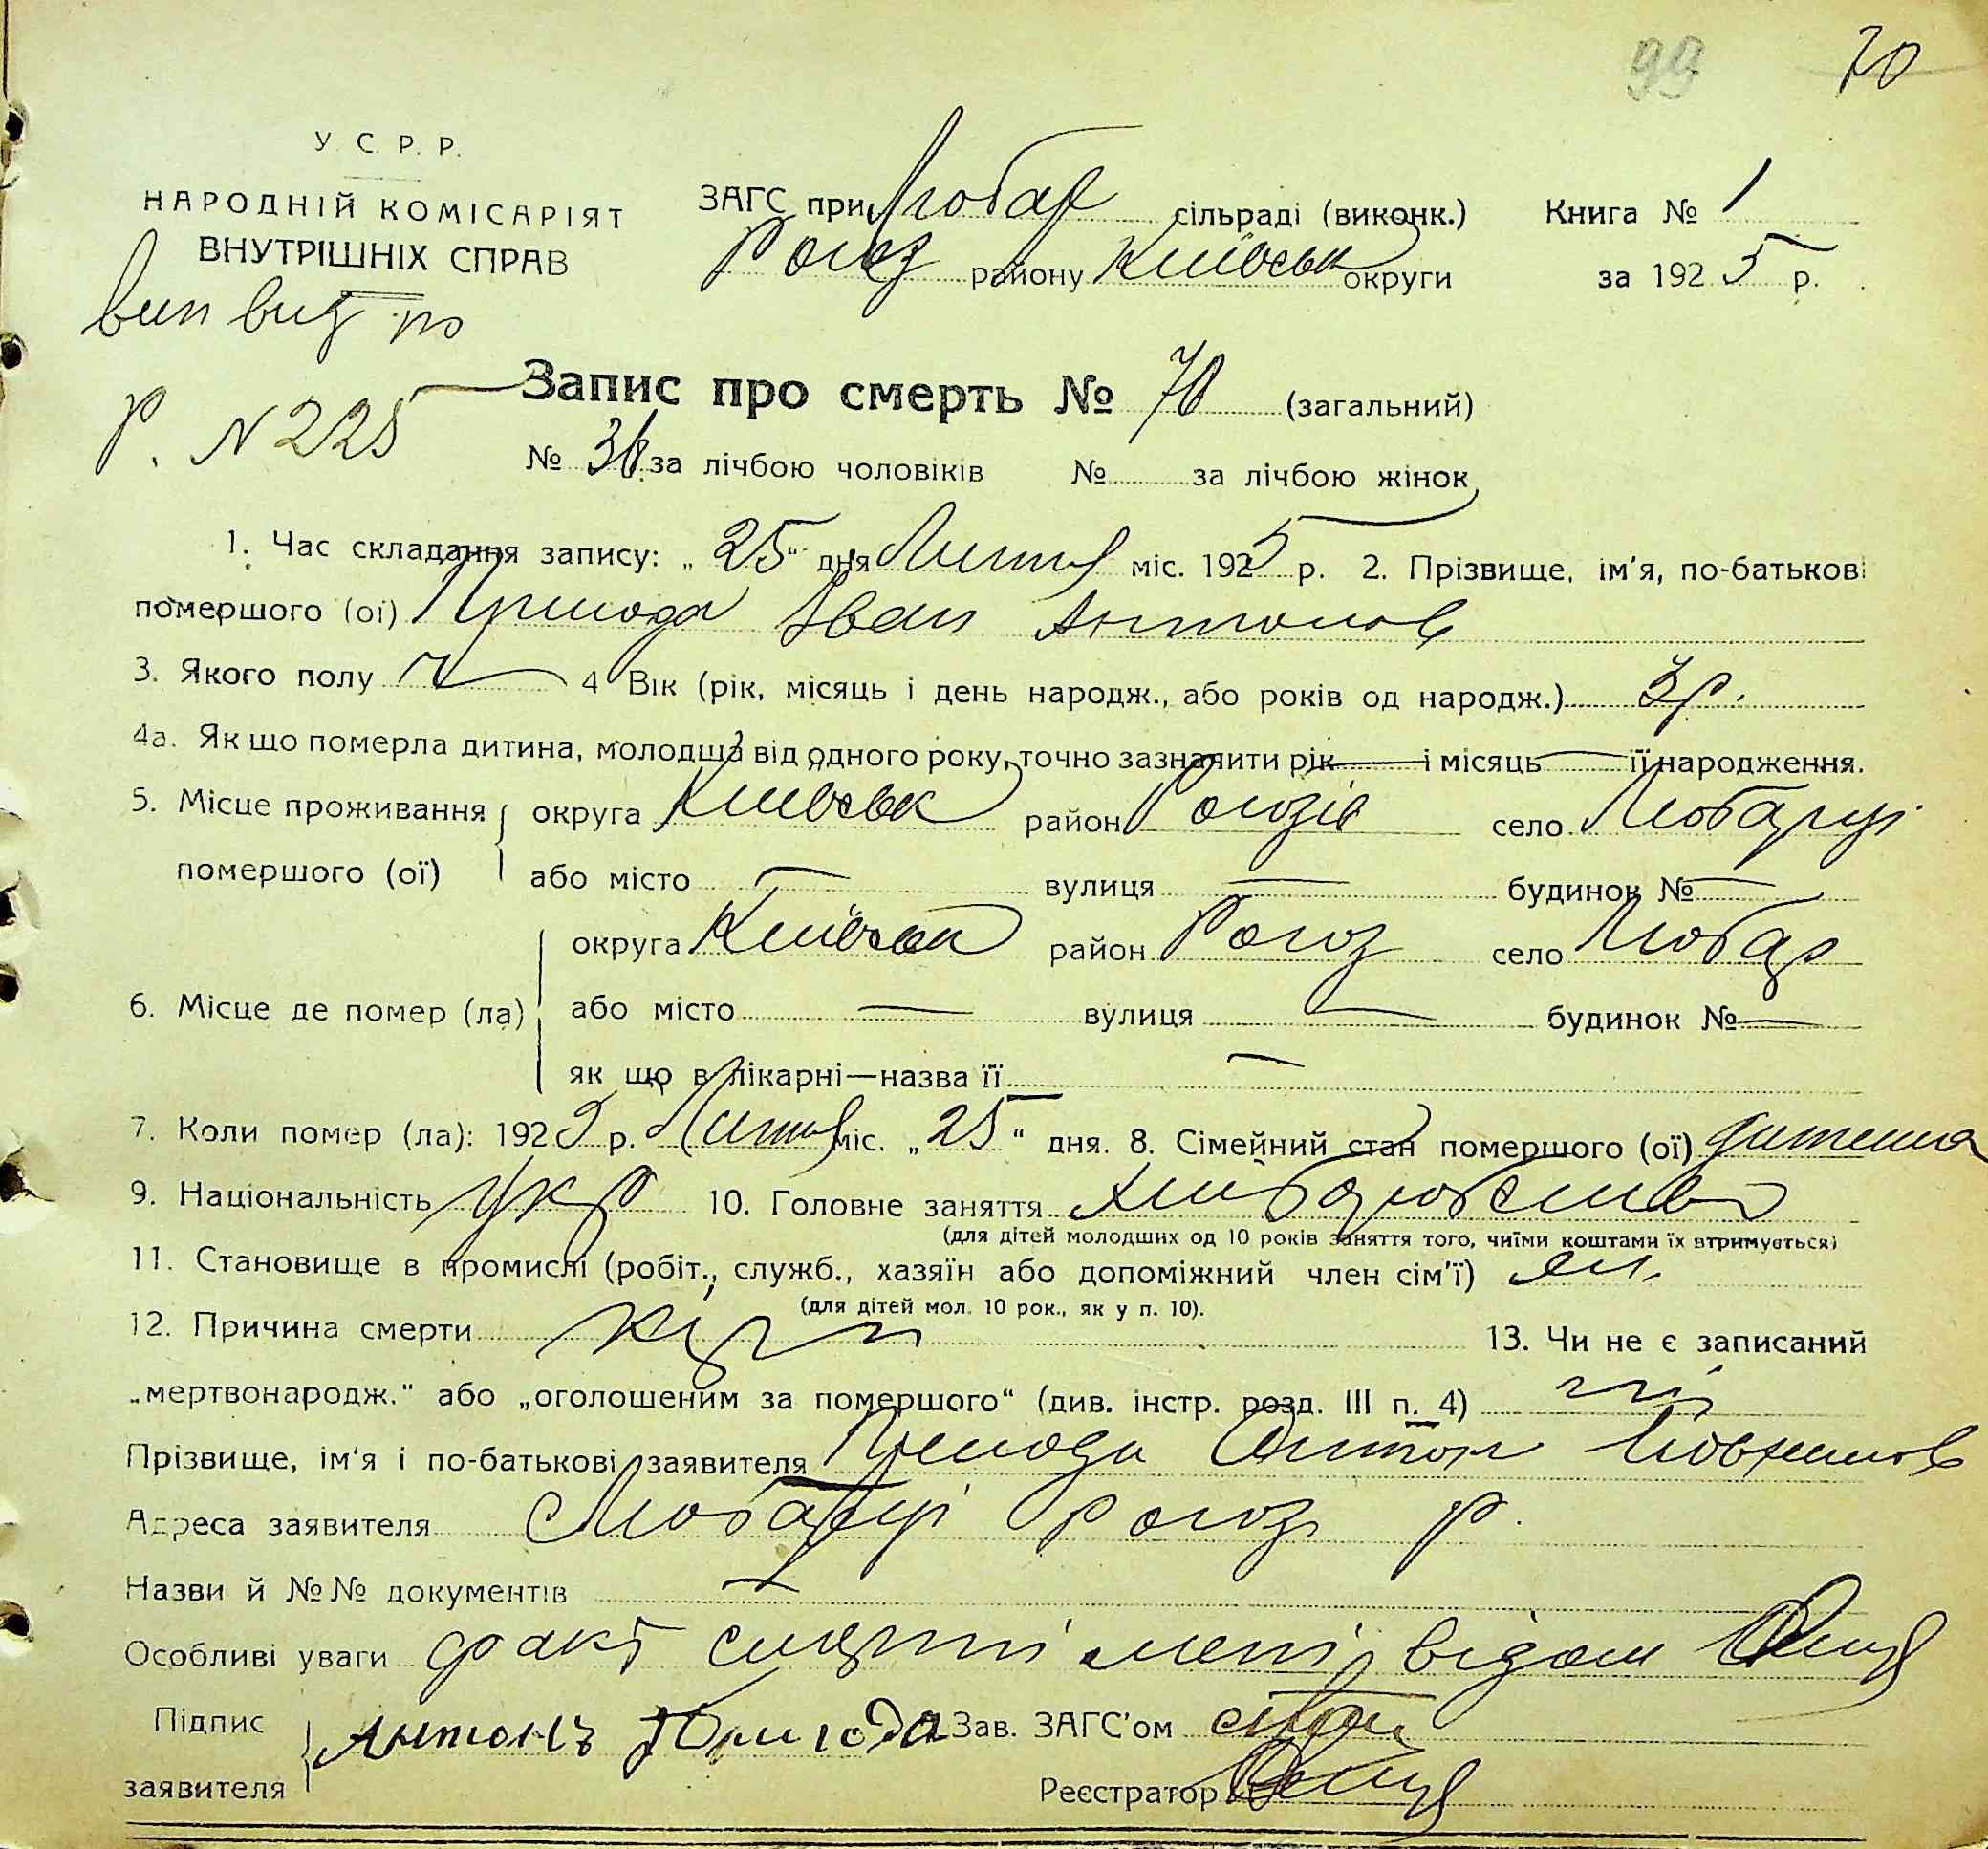 99 70
У. С. Р. Р.
НАРОДНІЙ КОМІСАРІЯТ
ВНУТРІШНІХ СПРАВ
ЗАГС при Любар сільраді (виконк.) Книга № 1
Рогоз району Київськ округи за 1925 р.
вип вид по
Р. N 225
Запис про смерть № 70 (загальний)
№ за лічбою чоловіків № за лічбою жінок
1. Час складання запису: „25“ дня міс. 1925 р. 2. Прізвище, ім'я, по-батькові
помершого (ої) Приходь Іван Антонов
3. Якого полу ч 4 Вік (рік, місяць і день народж., або років од народж.) 3 р.
4а. Як що померла дитина, молодша від одного року, точно зазначити рік — і місяць — її народження.
5. Місце проживання округа Київськ район Рогозів село Любарці
помершого (ої) або місто — вулиця — будинок № —
округа Київськ район Рогоз село Любар
6. Місце де помер (ла) або місто — вулиця — будинок № —
як що в лікарні—назва її —
7. Коли помер (ла): 1925 р. міс. „25“ дня. 8. Сімейний стан помершого (ої) дитина
9. Національність укр 10. Головне заняття хліборобство
(для дітей молодших од 10 років заняття того, чиїми коштами їх втримується)
11. Становище в промислі (робіт., служб., хазяїн або допоміжний член сім'ї)
(для дітей мол. 10 рок., як у п. 10).
12. Причина смерти 13. Чи не є записаний
„мертвонародж." або „оголошеним за помершого“ (див. інстр. розд. III п. 4) ні
Прізвище, ім'я і по-батькові заявителя Антон
Адреса заявителя Любарці Рогоз р.
Назви й №№ документів —
Особливі уваги факт смерті мені відом
Підпис Антонъ Зав. ЗАГС'ом
заявителя Реєстратор